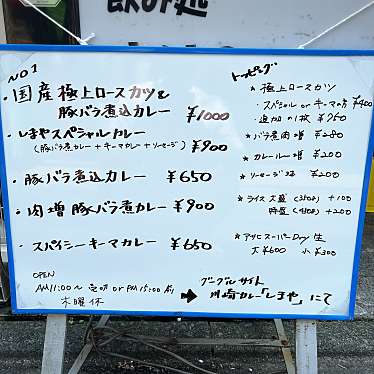 NO1
・国産極上ロースカツ&
豚バラ煮込カレー ¥1000
・しまやスペシャルカレー
(豚バラ煮カレー+キーマカレー+ソーセージ) ¥900
・豚バラ煮込カレー ¥650
・肉増豚バラ煮カレー ¥900
・スパイシーキーマカレー ¥650
OPEN
AM11:00〜売切 or PM15:00前
木曜休
トッピング
* 極上ロースカツ
・スペシャル or キーマの方 ¥400
・追加の1枚 ¥760
* バラ煮肉増 ¥280
* カレールー増 ¥200
* ソーセージ2本 ¥200
* ライス大盛(350g) +100
特盛(450g) +200
* アサヒスーパーDry 生
大 ¥600 小 ¥300
グーグルサイト
→ 川崎カレー「しまや」にて